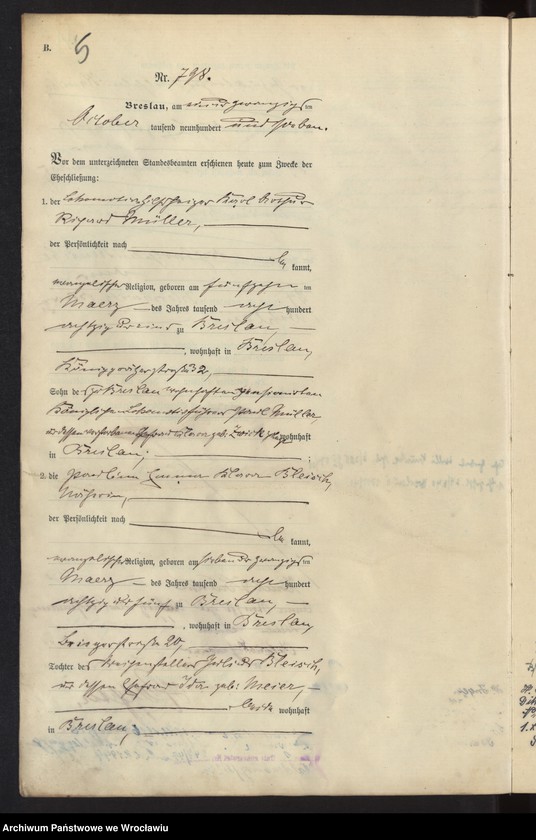 B.
5
Nr. 798.
Breslau, am einundzwanzigsten
October tausend neunhundert und sieben.
Vor dem unterzeichneten Standesbeamten erschienen heute zum Zwecke der
Eheschließung:
1. der Lokomotivhilfsheizer Karl
Richard Müller,
der Persönlichkeit nach
be kannt,
evangelischer Religion, geboren am fünfzehnten
Maerz des Jahres tausend acht hundert
achtzig zu Breslau,
, wohnhaft in Breslau,
32,
Sohn des zu Breslau wohnhaften pensionirten
Königlichen Lokomotivführers Müller,
geb. wohnhaft
in Breslau;
;
2. die Pauline Emma Klara Bleisch,
Näherin,
der Persönlichkeit nach
be kannt,
evangelischer Religion, geboren am siebenundzwanzigsten
Maerz des Jahres tausend acht hundert
achtzig und fünf zu Breslau,
, wohnhaft in Breslau,
20,
Tochter des Weichenstellers Bleisch,
und dessen Ehefrau Ida geb. Meier,
, beide wohnhaft
in Breslau,
Archiwum Państwowe we Wrocławiu